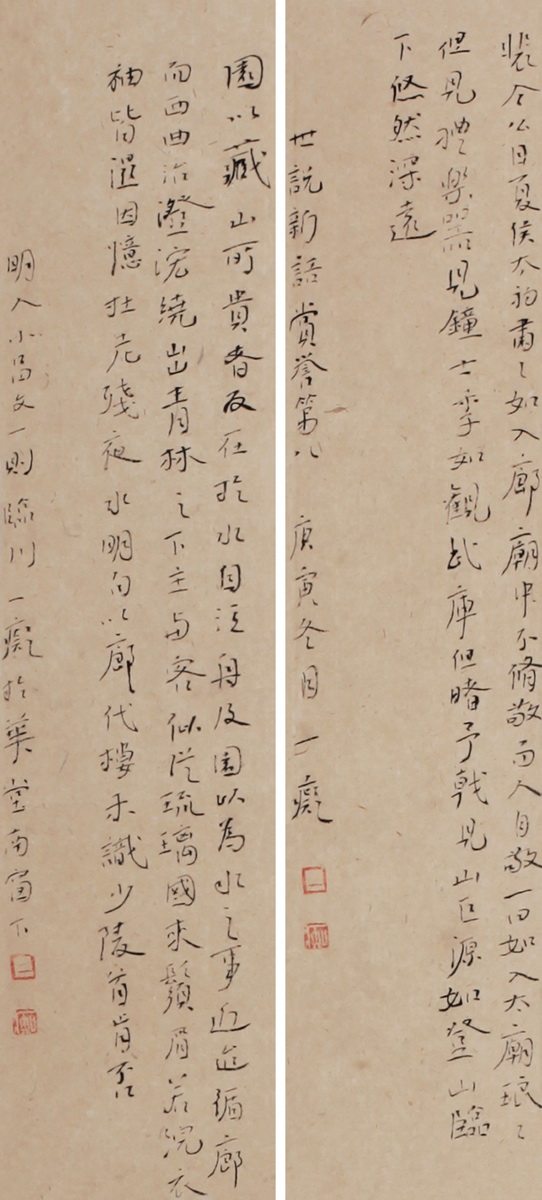 裴令公目夏侯太初肅々如入廊廟中不脩敬而人自敬一曰如入太廟琅々
但見禮樂器見鐘士季如觀武庫但睹矛戟見山巨源如登山臨
下悠然深遠
世說新語賞譽第八 庚寅冬日 一癡
園以藏山所貴者反在於水自泛舟及園以為水之事迨循廊
而西曲沼澄泓繞出青林之下主與客似從琉璃國來鬚眉若浣衣
袖皆濕因憶杜老殘夜水明句以廊代樓未識少陵首肯否
明人小品文一則臨川一癡於堂南窗下